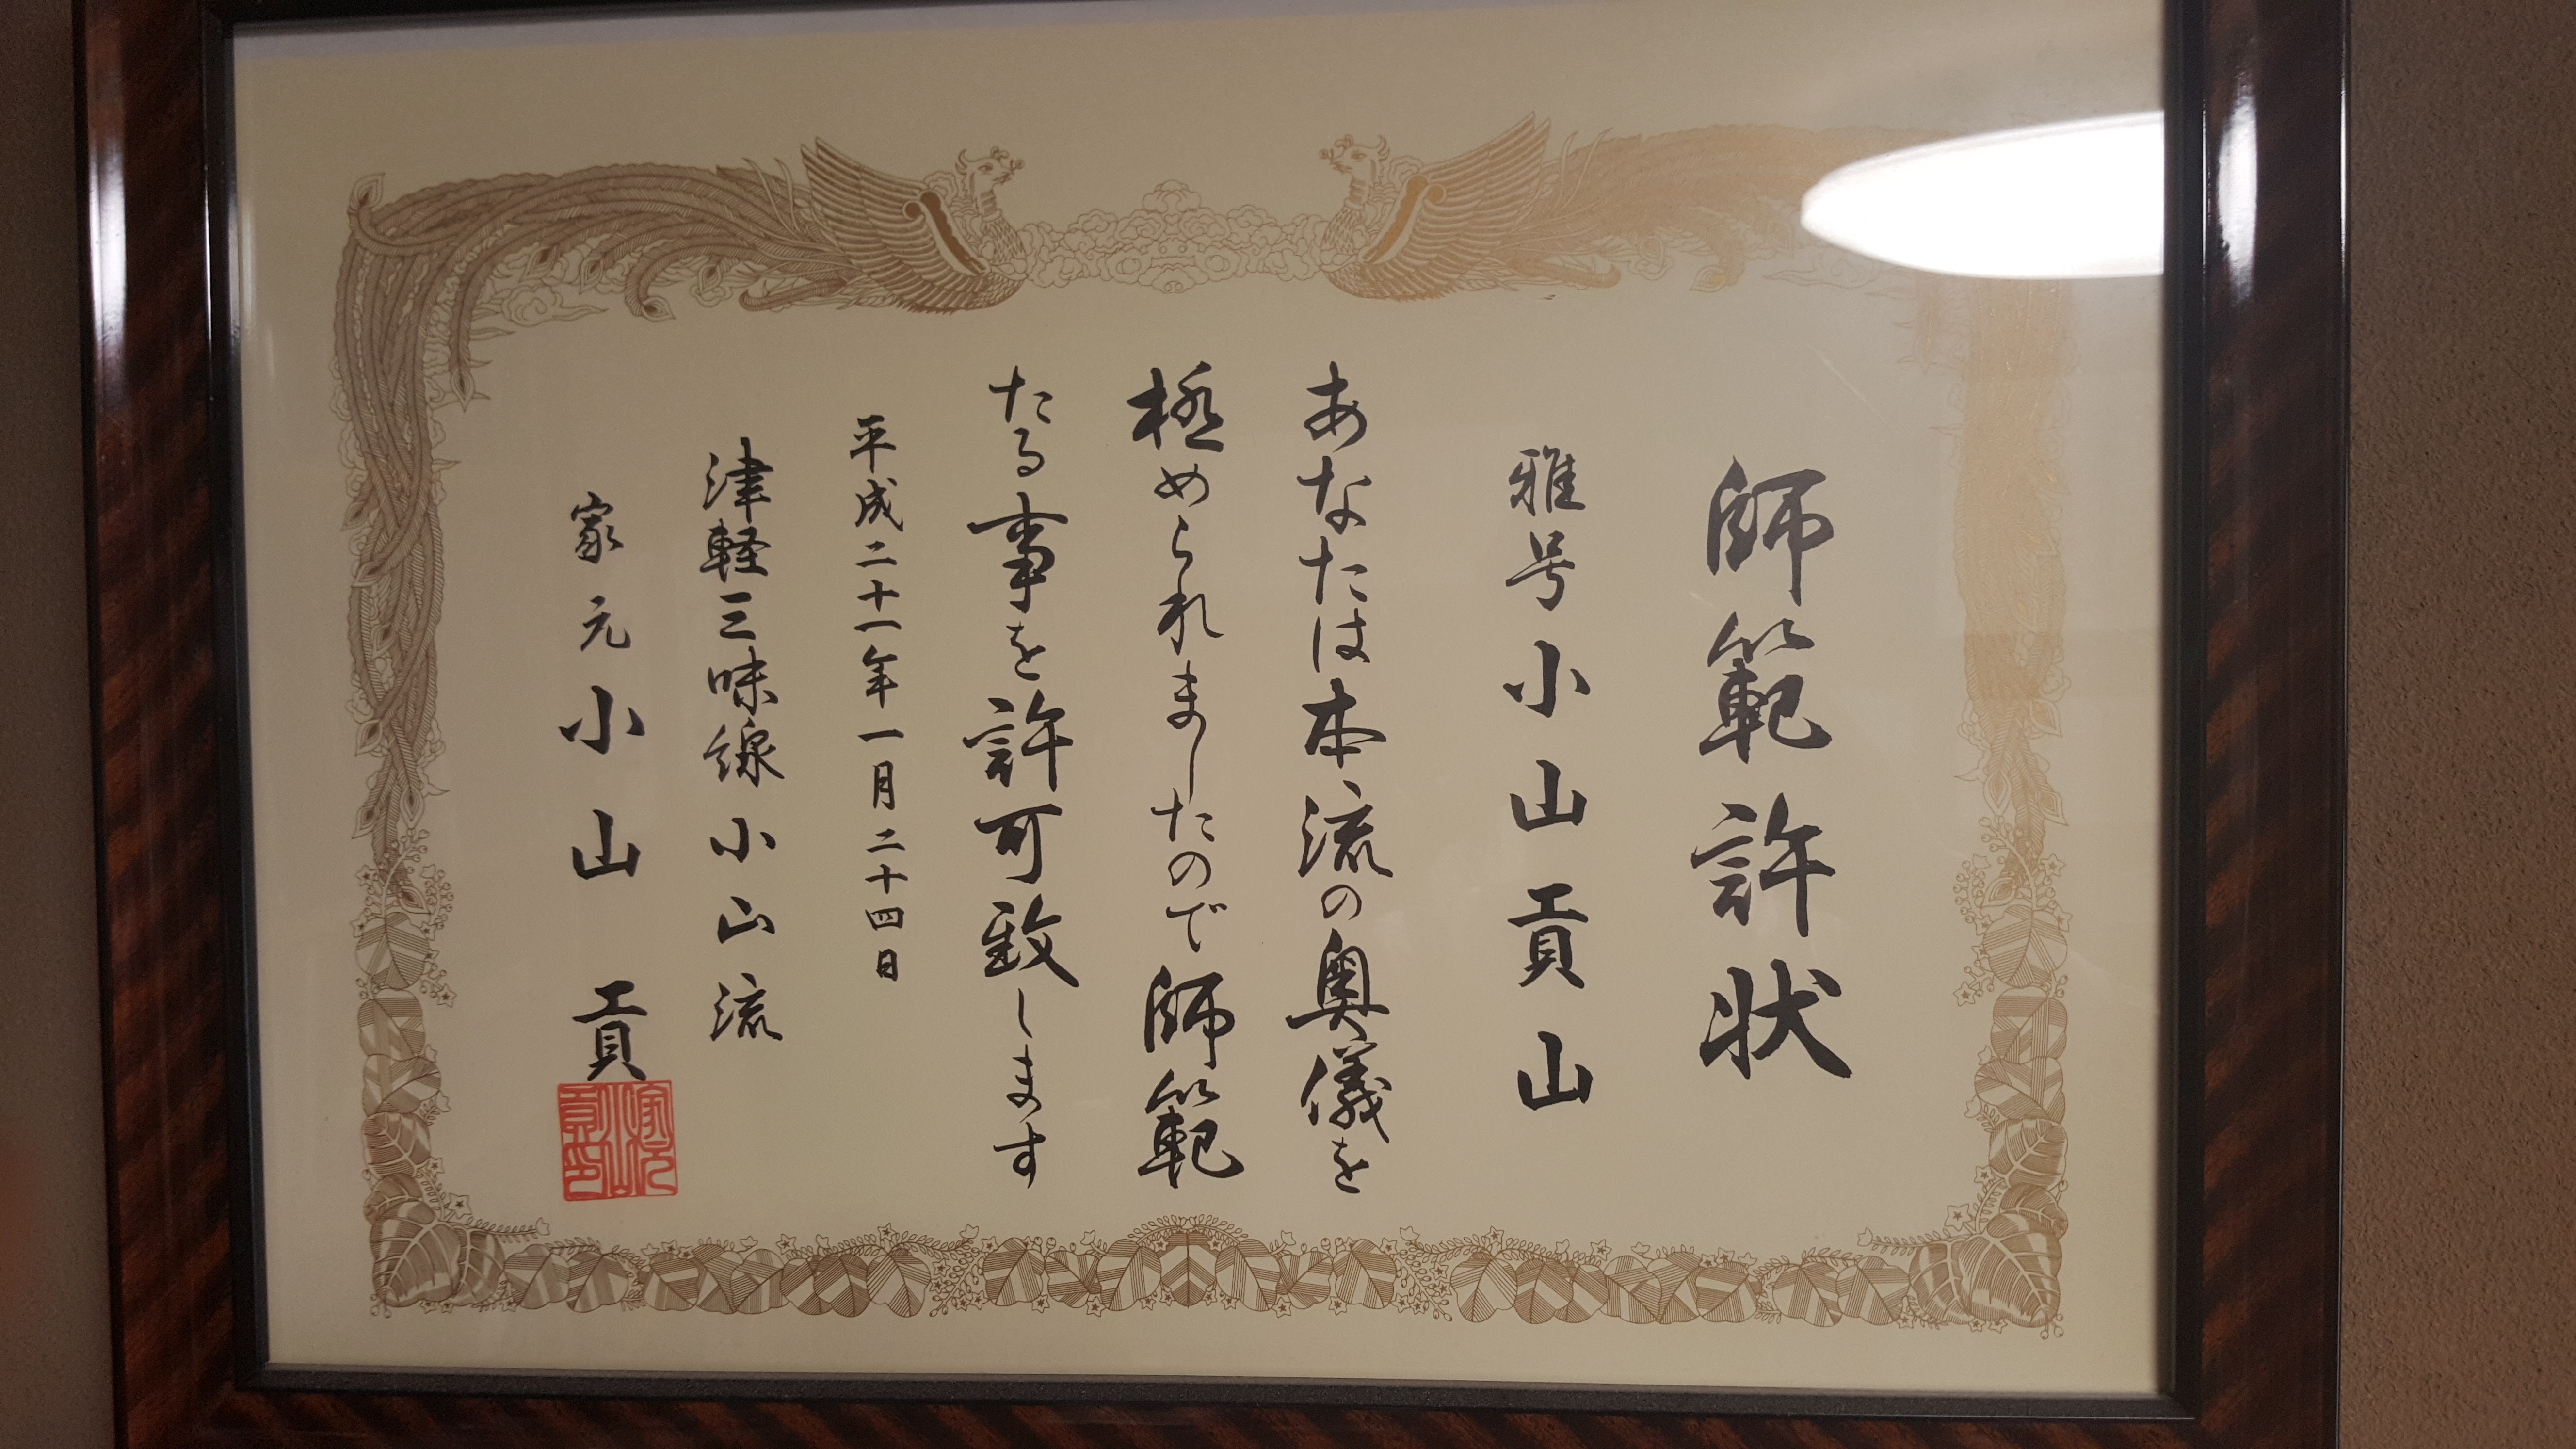 師範許状
雅号小山貢山
あなたは本流の奥儀を
極められましたので師範
たる事を許可致します
平成二十一年一月二十四日
津軽三味線小山流
家元小山貢